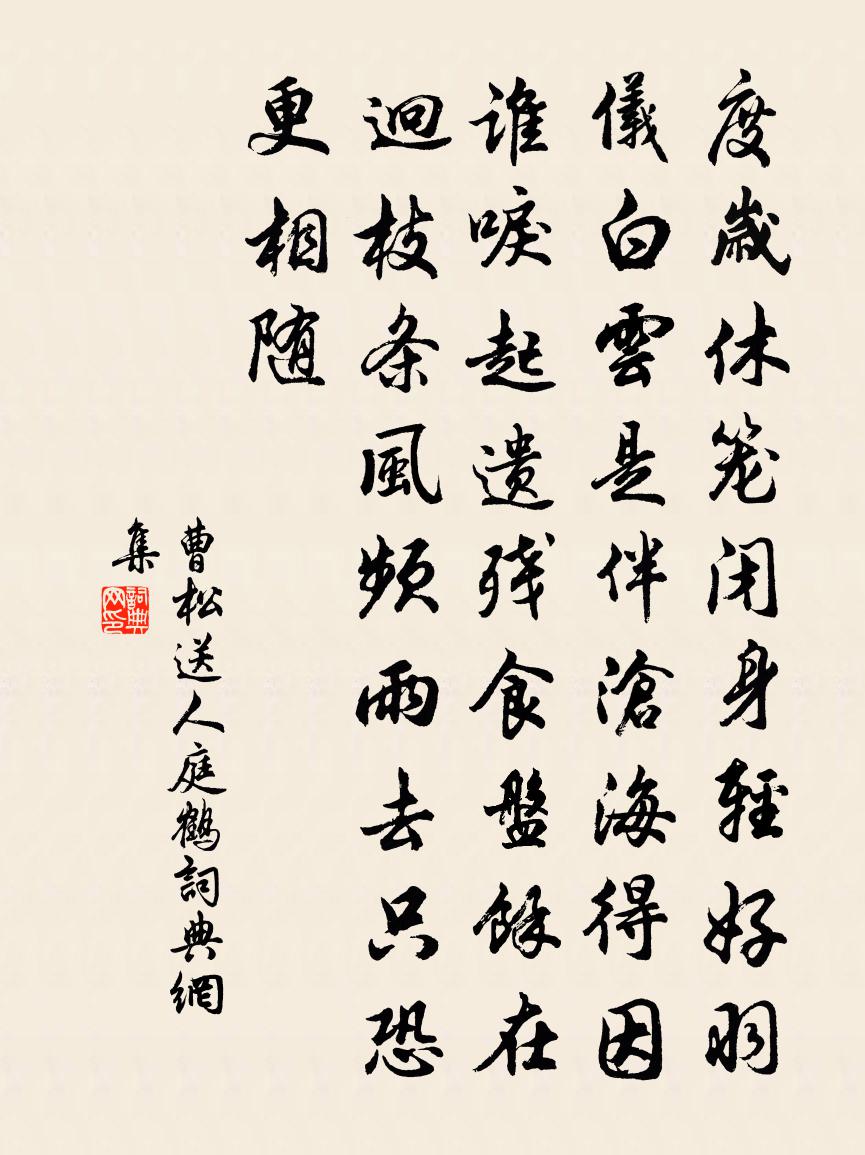 度歲休笼闭身輕好羽
儀白雲是伴滄海得因
誰唳起遗残食盤餘在
迴枝条風頻雨去只恐
更相随
曹松送人庭鶴詞典網
集
詞典
网印